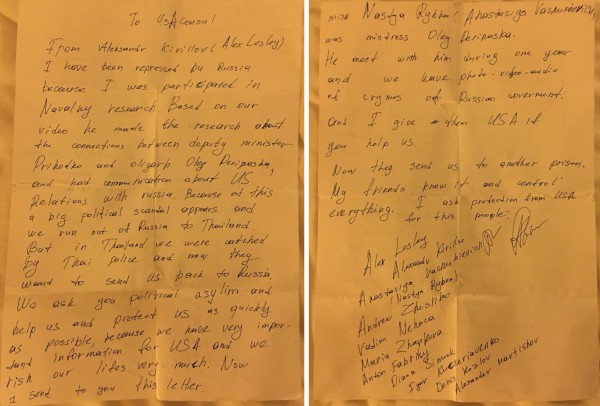 To USA consul
From Aleksandr Kirillov (Alex Lesley)
I have been repressed by Russia
because I was participated in
Navalny research. Based on our
video he made the research about
the connections between deputy minister
Prihodko and oligarh Oleg Deripaska,
and had communication about US
Relations with russia. Because of this
a big political scandal appears and
we run out of Russia to Thailand.
But in Thailand we were catched
by Thai police and now they
wand to send us back to Russia.
We ask you political asylim and
help us and protect us as quickly
as possible, because we have very impor-
tant information for USA and we
risk our lifes very much. Now
I send to you this letter.
miss Nastya Rybka/ Anastasiya Vashukevich,
was mistress Oleg Deripaska.
He meet with him during one year
and we have photo-video-audio
of cryms of Russian goverment.
and I give them USA if
you help us.
Now they send us to another prison.
My friends know it and control
everything. I ask protection from USA
for this people:
Alex Lesley
Alexandr Kirillov
Anastasiya Vashukevich
(Nastya Rybka)
Andrew
Vadim
Maria
Anton
Diana
Igor
Kozlov
Alexander